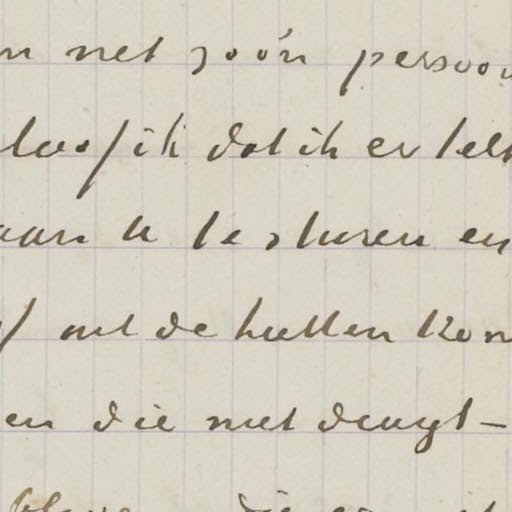 n net zo'ón persoon
loof ik dat ik er lelk
aan u te sturen en
of uit de hutten kom
en die niet deugt —
die